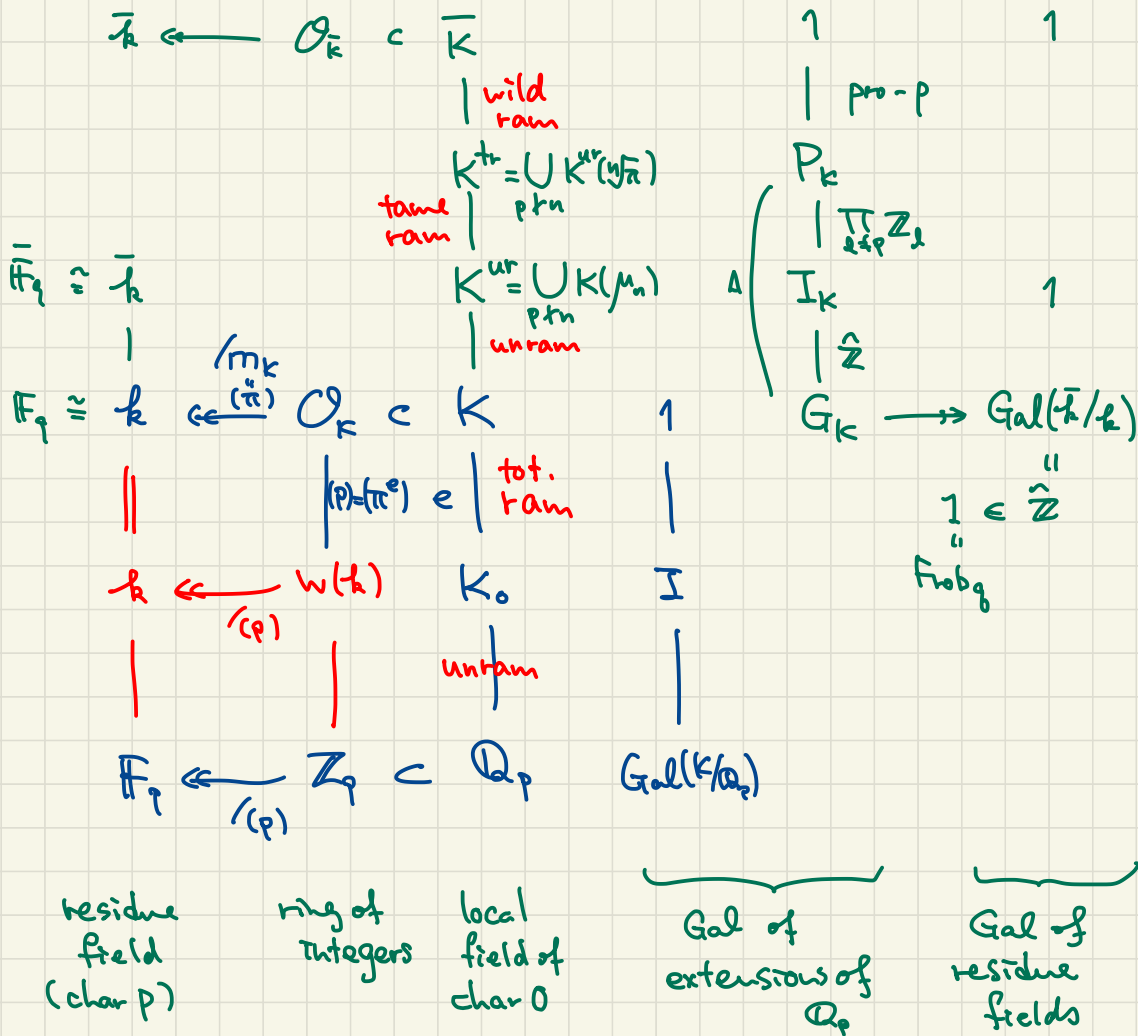 k̄ ↞ O_K̄ ⊂ K̄ 1 1
wild ram | pro-p
K^tr = ⋃_{p∤n} K^ur(ⁿ√π) P_K
tame ram | ∏_{ℓ≠p} ℤ_ℓ
𝔽̄_q ≅ k̄ K^ur = ⋃_{p∤n} K(μ_n) Δ I_K 1
unram | ℤ̂
/m_K
"
(π)
𝔽_q ≅ k ↞ O_K ⊂ K 1 G_K ↠ Gal(k̄/k)
"
(p)=(π^e) e tot. ram 1 ∈ ℤ̂
"
k ↞ W(k) K₀ I Frob_q
/(p)
unram
𝔽_p ↞ ℤ_p ⊂ ℚ_p Gal(K/ℚ_p)
/(p)
residue
field
(char p)
ring of
integers
local
field of
char 0
Gal of
extensions of
ℚ_p
Gal of
residue
fields